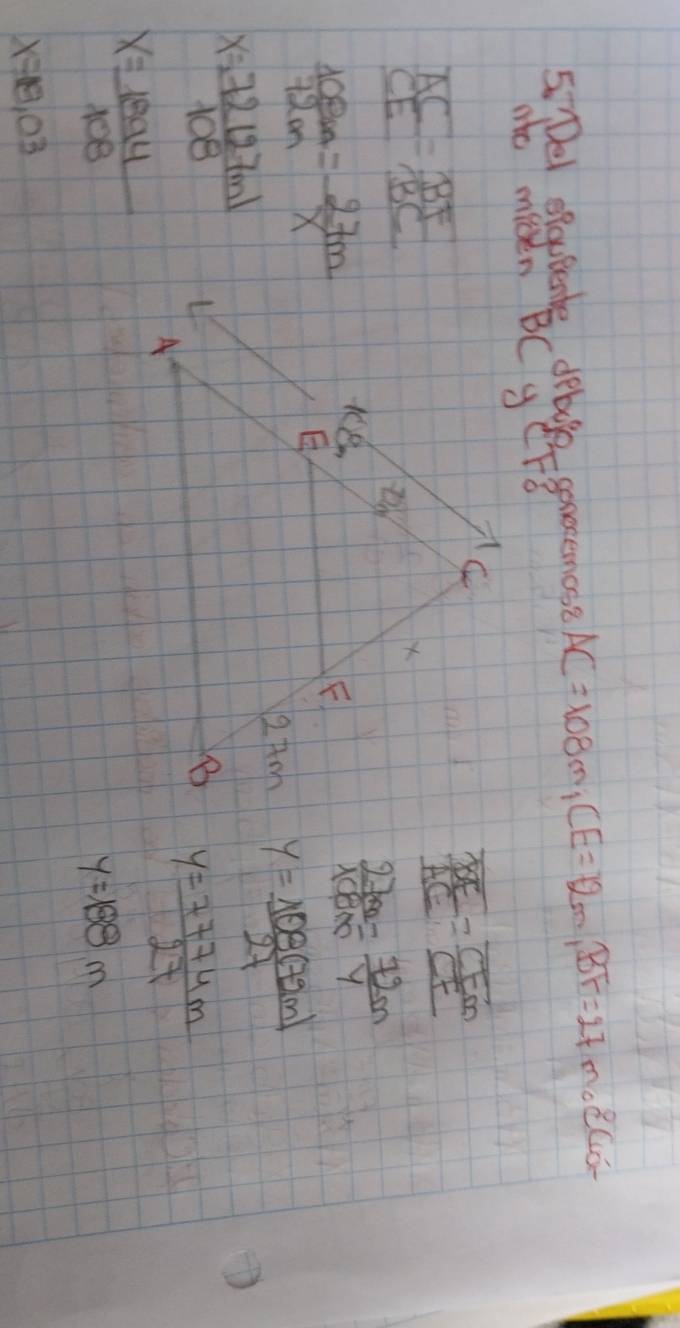 5.- Del siguiente dibujo, conocemos: AC = 108m, CE = 72m, BF = 27m. ¿Cuán-
to miden BC y CF?
AC/CE = BF/BC
108m/72m = 27m/X
X = 72(27m)/108
108
X =
X =
L
A
E
108m
72m
C
x
F
27m
B
27m/108m = 72m/Y
Y = 108(72m)/27
Y = 7774m/27
Y = 188 m